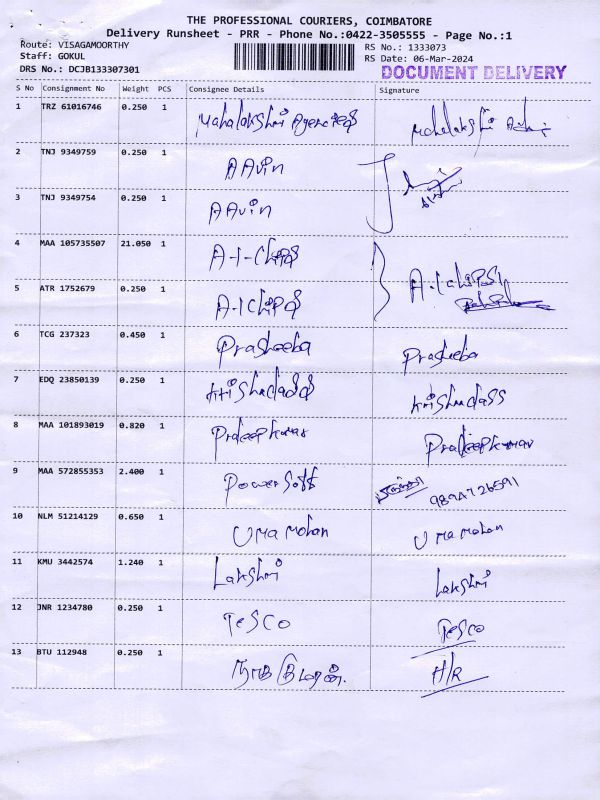 THE PROFESSIONAL COURIERS, COIMBATORE
Delivery Runsheet - PRR - Phone No.:0422-3505555 - Page No.:1
Route: VISAGAMOORTHY
RS No.: 1333073
Staff: GOKUL
RS Date: 06-Mar-2024
DRS No.: DCJB133307301
DOCUMENT DELIVERY
S No Consignment No Weight PCS Consignee Details Signature
1 TRZ 61016746 0.250 1 Mahalakshmi Agencies Mahalakshmi
2 TNJ 9349759 0.250 1 AAvin
3 TNJ 9349754 0.250 1 AAvin
4 MAA 105735507 21.050 1 A-1-Chips
5 ATR 1752679 0.250 1 A-1 Chips A-1 chips
6 TCG 237323 0.450 1 Prasheeba Prasheeba
7 EDQ 23850139 0.250 1 Krishnadass Krishnadass
8 MAA 101893019 0.820 1 Pradeepkumar Pradeepkumar
9 MAA 572855353 2.400 1 Power Soft 9894726591
10 NLM 51214129 0.650 1 Uma Mohan Uma Mohan
11 KMU 3442574 1.240 1 Lakshmi Lakshmi
12 JNR 1234780 0.250 1 TESCO TESCO
13 BTU 112948 0.250 1 H/R